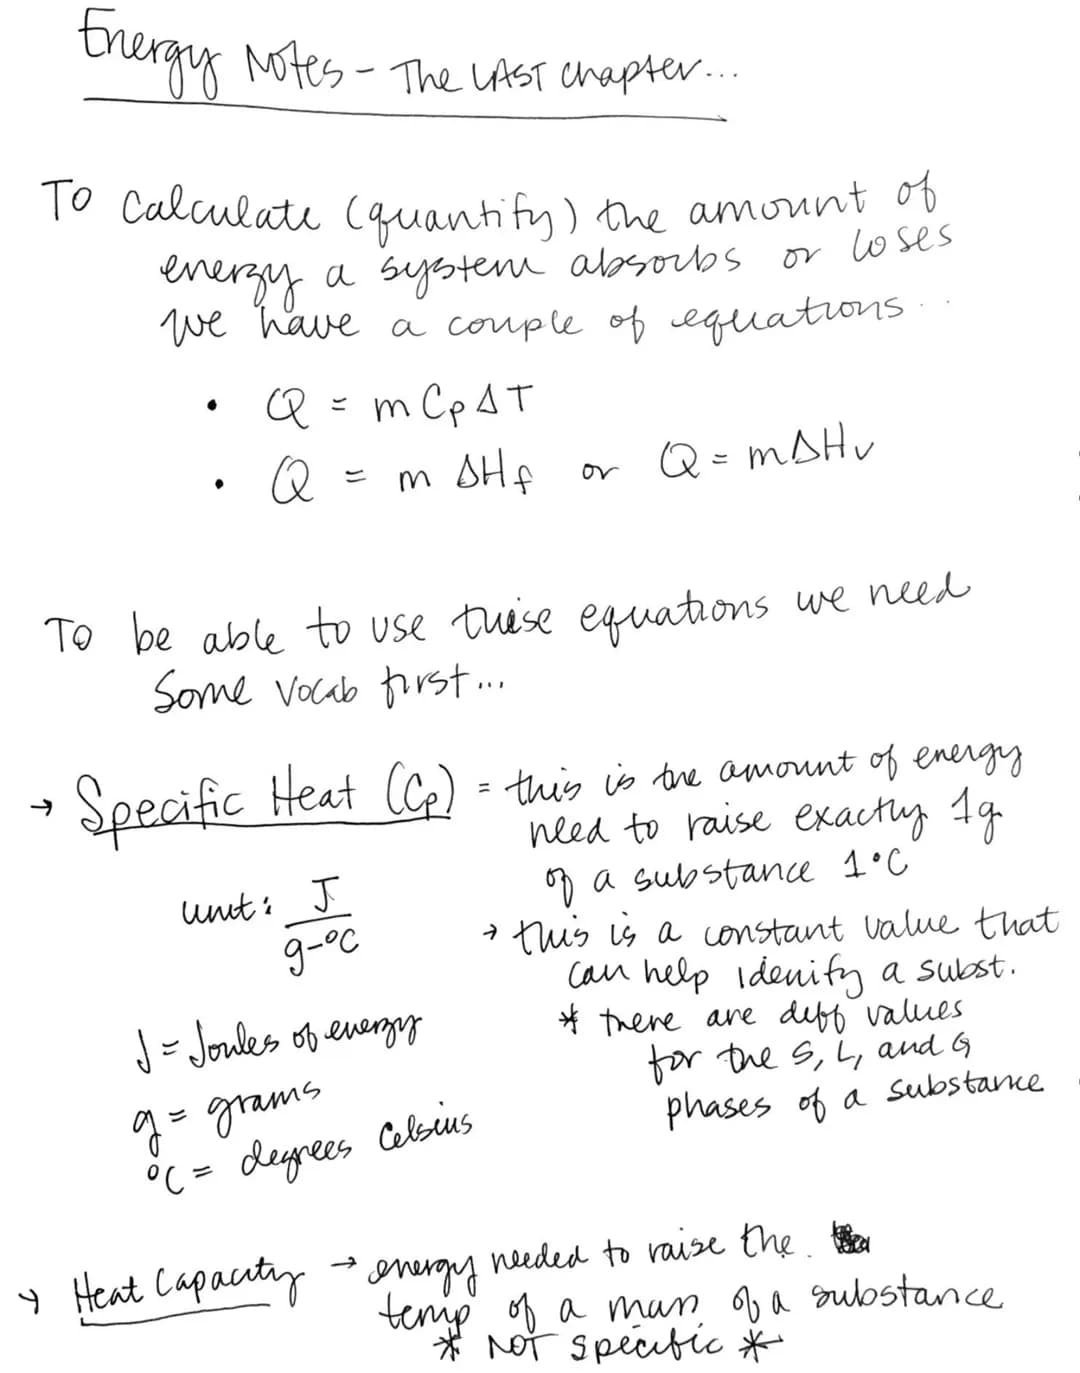 Energy Notes - The LAST chapter...
To calculate (quantify) the amount of
energy a system absorbs or loses
we have a couple of equations...
• Q = m Cp ΔT
• Q = m ΔHf or Q = mΔHv
To be able to use these equations we need
some vocab first...
→ Specific Heat (Cp) = this is the amount of energy
need to raise exactly 1g
of a substance 1°C
unit: J
g-°C
→ this is a constant value that
can help idenify a subst.
* there are diff values
for the S, L, and G
phases of a substance
J = Joules of energy
g = grams
°C = degrees Celsius
→ Heat Capacity → energy needed to raise the
temp of a mass of a substance
* NOT specific *